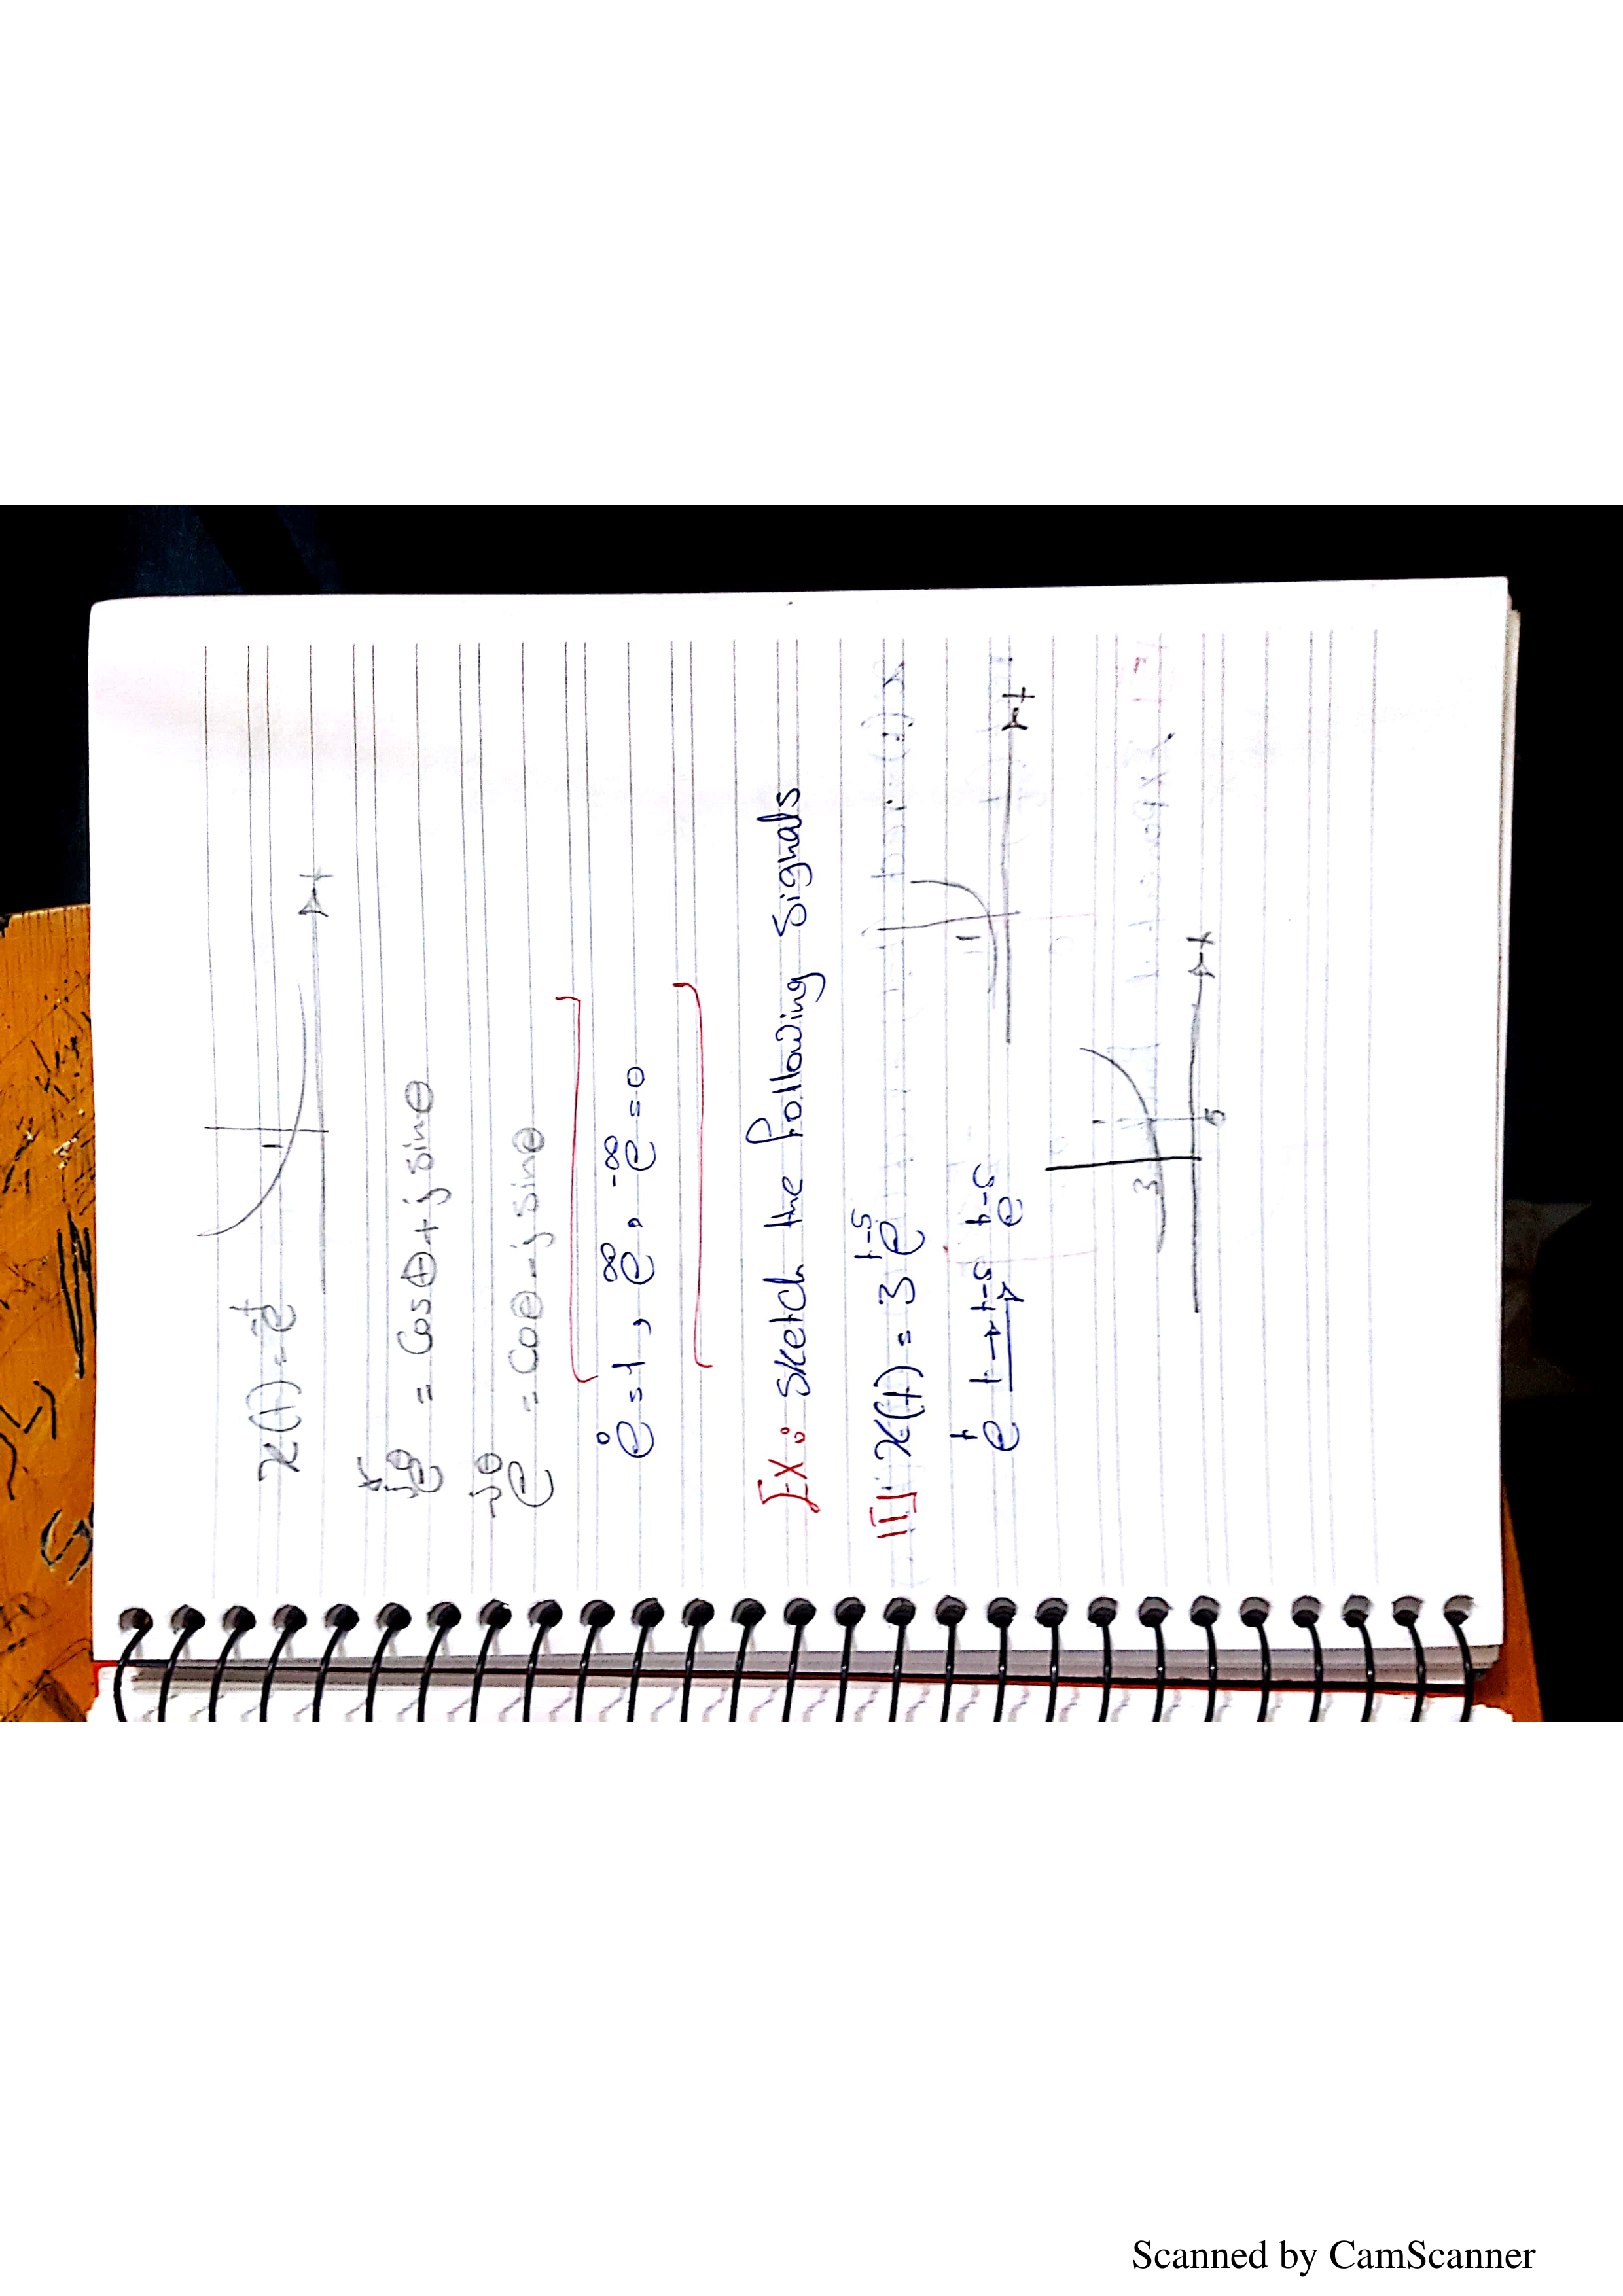 x(t) = e^-t
1
t
* e^jθ = Cosθ + j sinθ
e^-jθ = Coθ - j sinθ
e^0 = 1 , e^∞ = ∞ , e^-∞ = 0
EX: sketch the following signals
[1] x(t) = 3 e^t-5
e^t t → t-5 e^t-5
1
t
3
5
t
Scanned by CamScanner